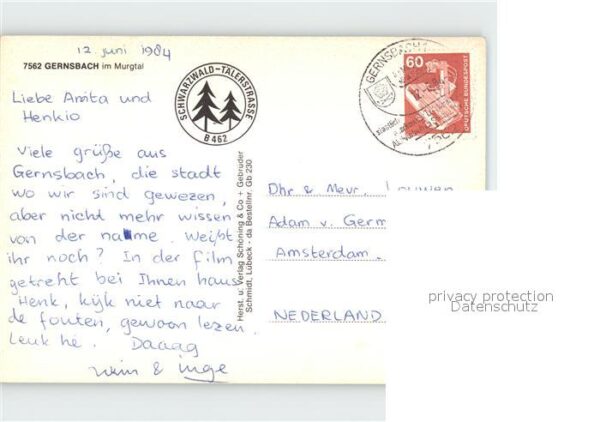 12 juni 1984
7562 GERNSBACH im Murgtal
SCHWARZWALD-TÄLERSTRASSE
B 462
GERNSBACH
60
DEUTSCHE BUNDESPOST
Liebe Anita und
Henkio
Viele grüße aus
Gernsbach, die stadt
wo wir sind gewezen,
aber nicht mehr wissen
von der name. Weißt
ihr noch? In der film
getreht bei Ihnen haus
Henk, kijk niet naar
de fouten, gewoon lezen.
Leuk hè. Daaag
Wim & Inge
Herst. u. Verlag Schöning & Co + Gebrüder
Schmidt, Lübeck - da Bestellnr. Gb 230
Dhr & Mevr.
Adam v. Germ
Amsterdam.
NEDERLAND
privacy protection
Datenschutz